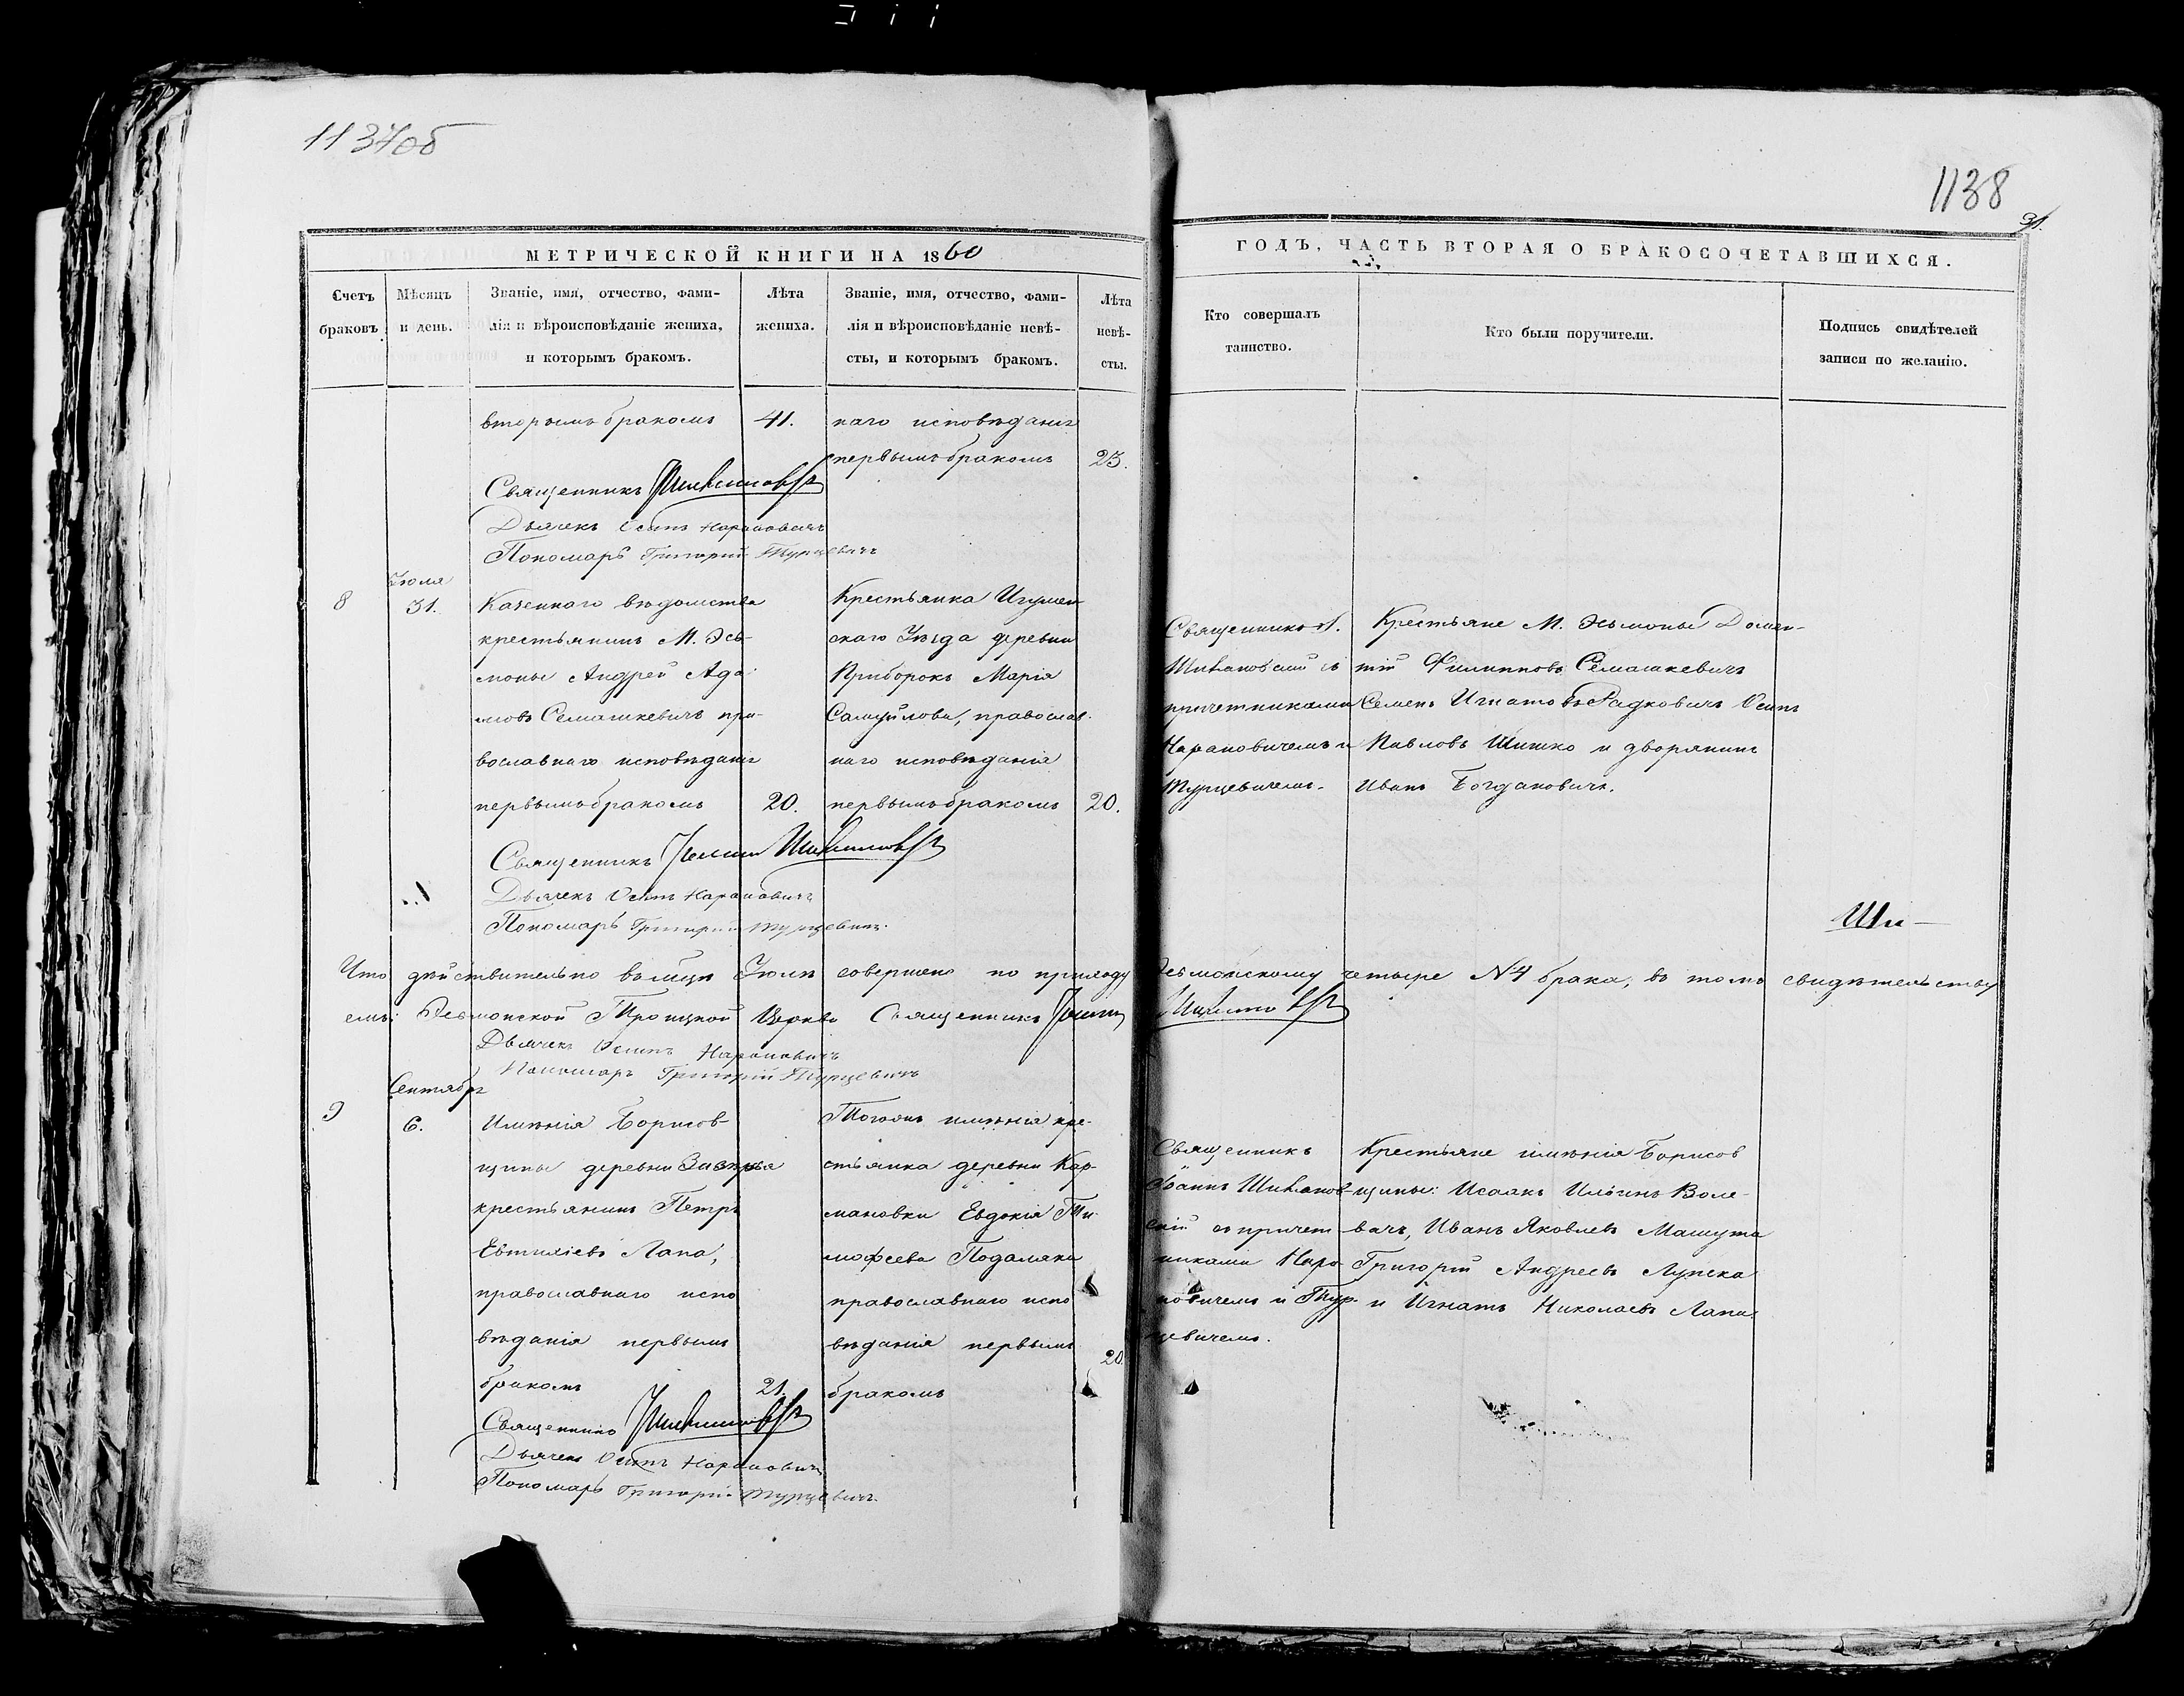 1137об
1138
91.
МЕТРИЧЕСКОЙ КНИГИ НА 1860
ГОДЪ, ЧАСТЬ ВТОРАЯ О БРАКОСОЧЕТАВШИХСЯ.
Счетъ браковъ.
Мѣсяцъ и день.
Званіе, имя, отчество, фами-
лія и вѣроисповѣданіе жениха,
и которымъ бракомъ.
Лѣта жениха.
Званіе, имя, отчество, фами-
лія и вѣроисповѣданіе невѣ-
сты, и которымъ бракомъ.
Лѣта
невѣ-
сты.
Кто совершалъ
таинство.
Кто были поручители.
Подпись свидѣтелей
записи по желанію.
вторымъ бракомъ 41.
наго исповѣданія
первымъ бракомъ 23.
Священникъ
Дьячекъ Осипъ Нарановичъ
Пономарь Григорій Турцевичъ
8
Іюля
31.
Казеннаго вѣдомства
крестьянинъ М. Эсь-
моны Андрей Ада
мовъ Семашкевичъ пра-
вославнаго исповѣданія
первымъ бракомъ 20.
Крестьянка Игумен
скаго Уѣзда деревни
Приборокъ Марія
Самуйлова, православ-
наго исповѣданія
первымъ бракомъ 20.
Священникъ І.
Шимановскій съ
причетниками
Нарановичемъ и
Турцевичемъ.
Крестьяне М. Эсьмоны Домен-
тій Филипповъ Семашкевичъ
Семенъ Игнатовъ Радковичъ Осипъ
Павловъ Шишко и дворянинъ
Иванъ Богдановичъ.
Священникъ Іоаннъ Шимановскій
Дьячекъ Осипъ Нарановичъ
Пономарь Григорій Турцевичъ.
Ши—
Что дѣйствительно въ мцѣ Іюлѣ совершено по приходу Эсьмонскому четыре №4 брака, въ томъ свидѣтельству
емъ: Эсьмонской Троицкой Церкви Священникъ Іоаннъ Шимановскій
Дьячекъ Осипъ Нарановичъ
Пономарь Григорій Турцевичъ
9
Сентября
6.
Имѣнія Борисов-
щины деревни
крестьянинъ Петръ
Евтихіевъ Лапа,
православнаго испо
вѣданія первымъ
бракомъ 21.
Тогожъ имѣнія кре-
стьянка деревни Кар-
мановки Евдокія Ти-
мофеева Подаляка
православнаго испо
вѣданія первымъ 20
бракомъ
Священникъ
Іоаннъ Шиманов-
скій съ причет
никами Нара
новичемъ и Тур-
цевичемъ.
Крестьяне имѣнія Борисов
щины: Исаакъ Ильинъ Воле-
вачъ, Иванъ Яковлевъ Машута
Григорій Андреевъ Лупека
и Игнатъ Николаевъ Лапа.
Священникъ
Дьячекъ Осипъ Нарановичъ
Пономарь Григорій Турцевичъ.